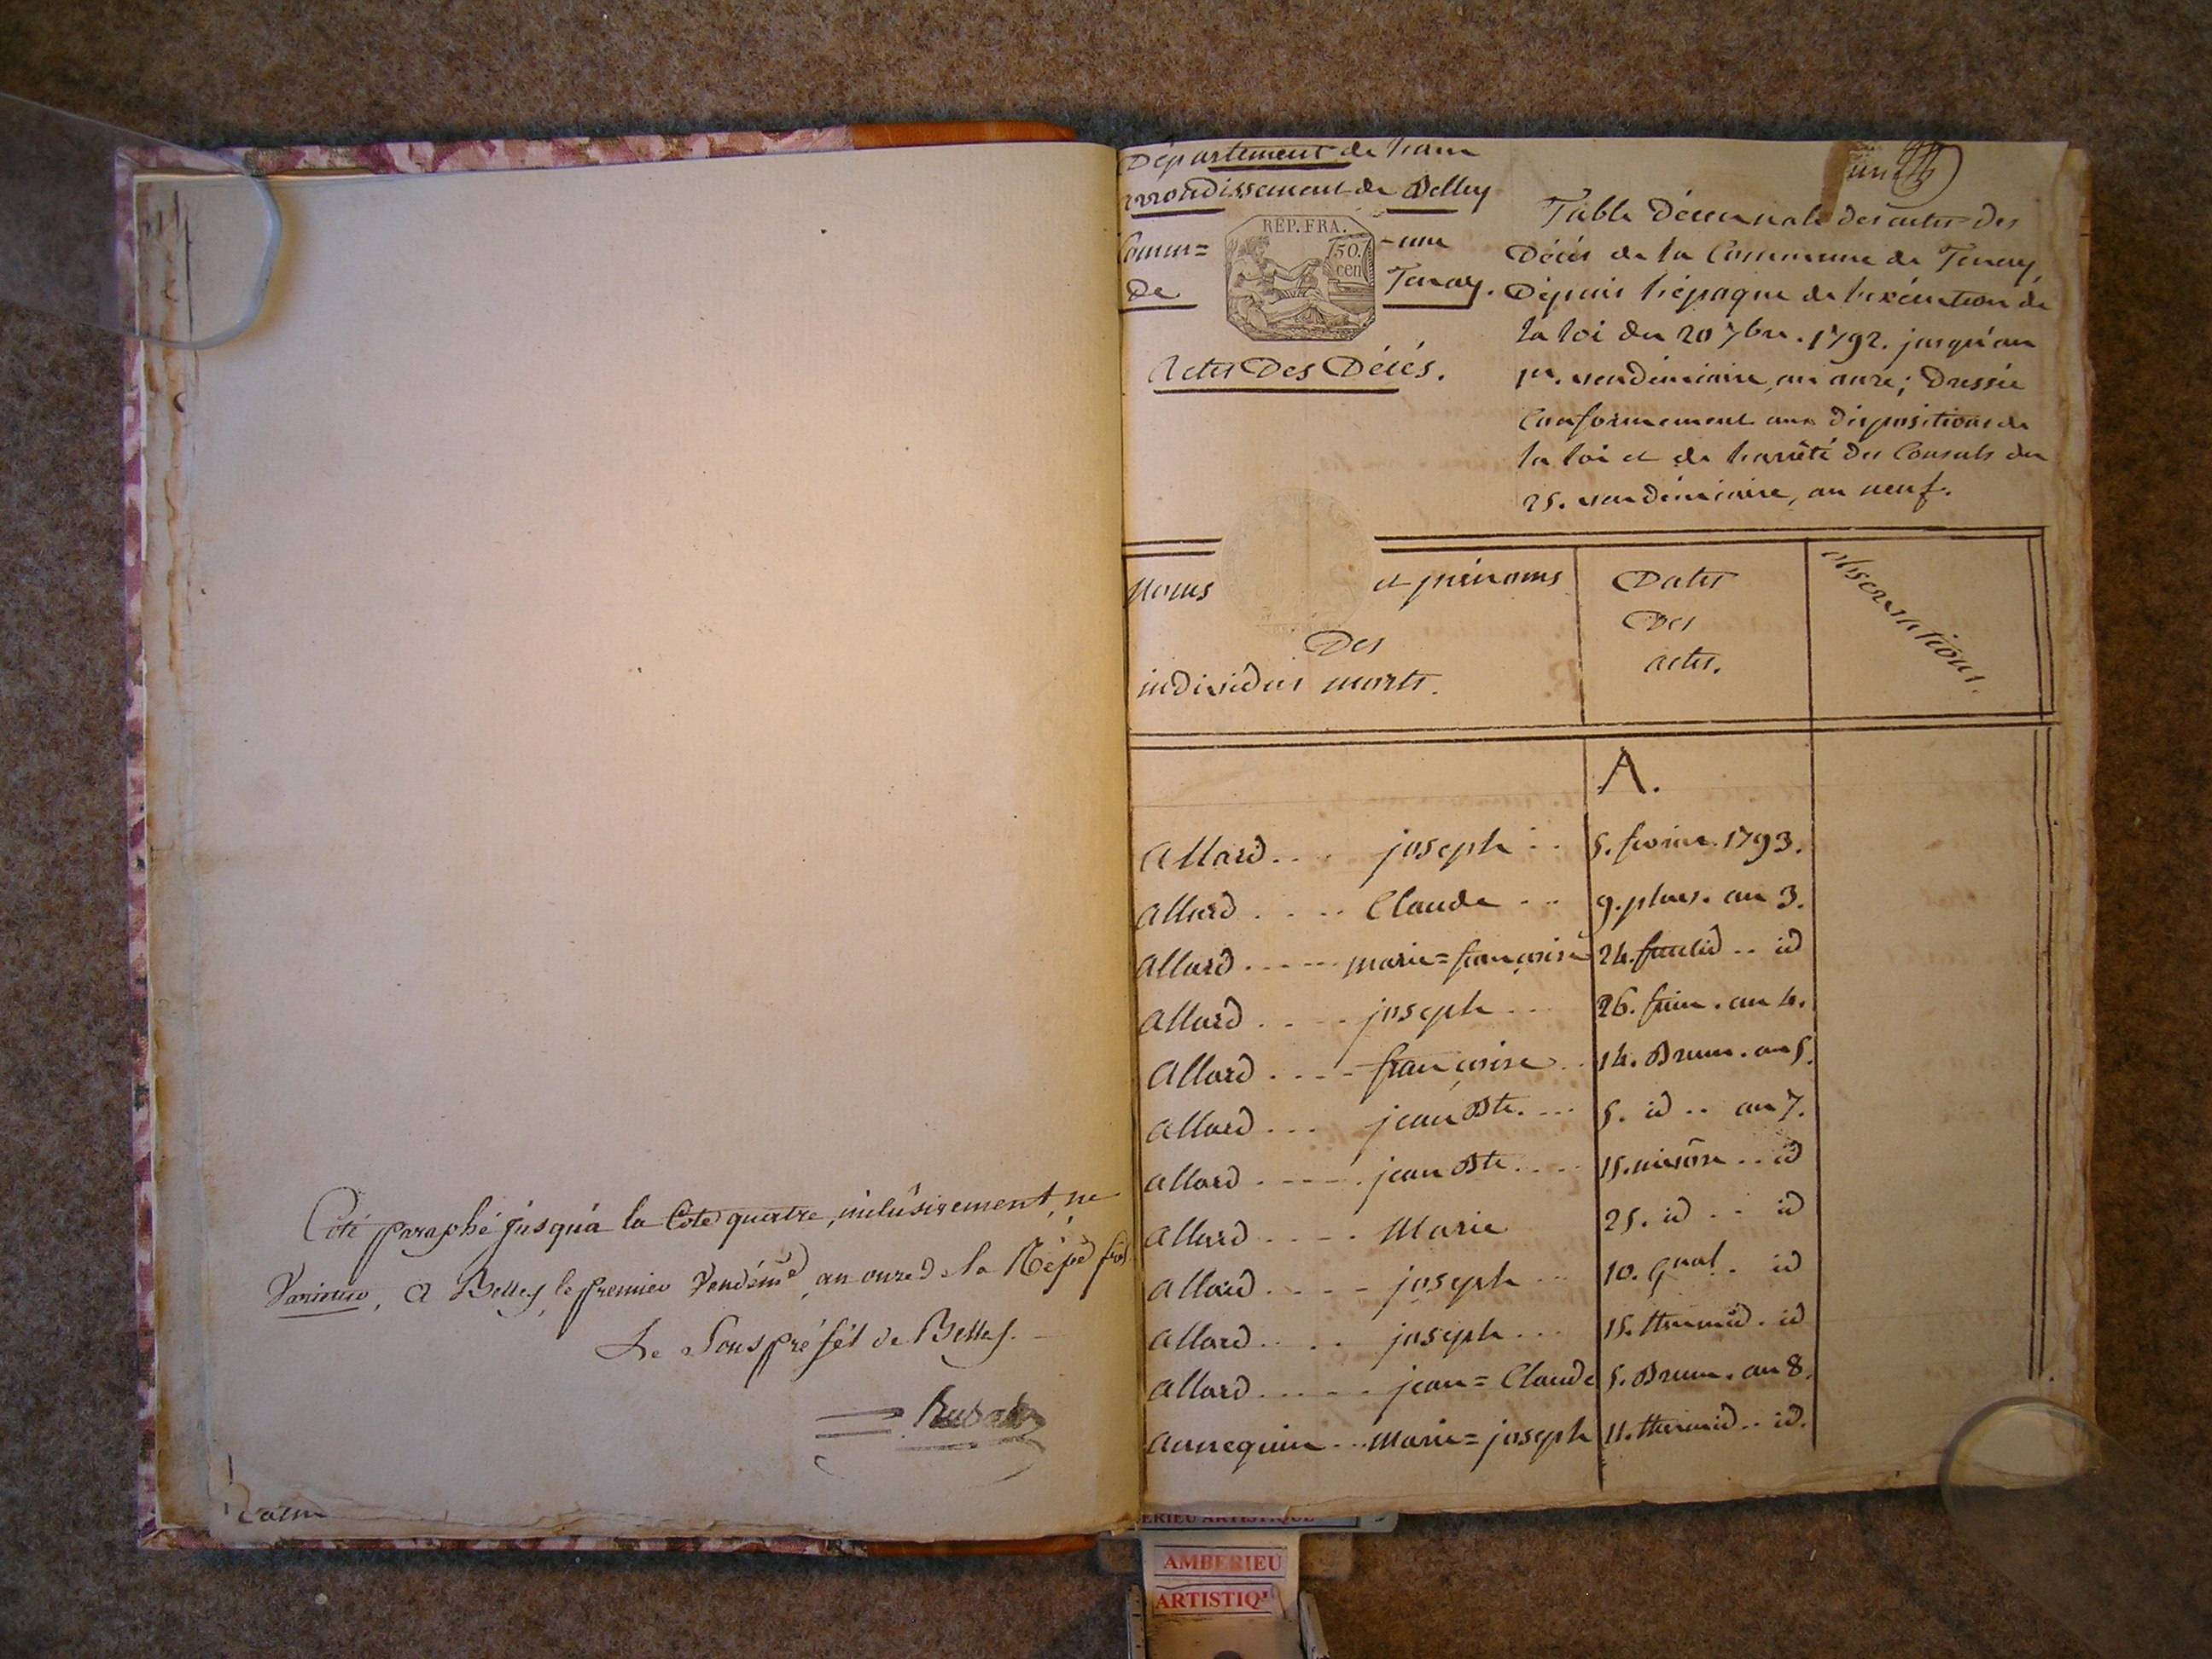 Coté paraphé jusqu'a la Cote quatre, inclusivement, ne
Varietur, a Belley, le premier Vendém.re an onze de la Rép.e
Le Souspréfet de Belley.
Département de l'ain
arrondissement de Belley
Comm= -une
de Tenay.
REP. FRA.
50.
cen
Actes Des Décés.
Table Décennale des actes des
Décés de la Commune de Tenay,
Depuis l'époque de l'exécution de
la loi du 20 7bre. 1792. jusqu'au
1er. vendémiaire, an onze; Dressée
Conformement aux dispositions de
la loi et de l'arrêté des Consuls du
25. vendémiaire, an neuf.
Noms et prénoms
Des
individus morts.
Dates
Des
actes.
observations.
A.
Allard.... joseph.. 5. fevrier. 1793.
Allard.... Claude... 9. pluv. an 3.
Allard..... marie=françoise 24. fructid.. id
Allard..... joseph... 26. frim. an 4.
Allard.... françoise.. 14. Brum. an 5.
Allard... jean Bte.... 5. id.. an 7.
Allard..... jean Bte.... 15. nivôse.. id
Allard.... Marie 25. id.. id
Allard.... joseph... 10. g.nal. id
Allard.... joseph... 15. thermid. id
Allard..... jean=Claude 5. Brum. an 8.
Annequin... Marie=joseph 11. thermid.. id.
AMBERIEU
ARTISTIQ